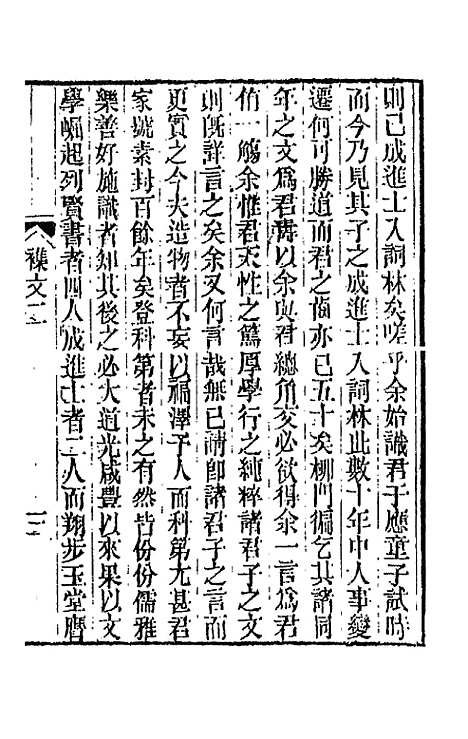 則已成進士入詞林矣嗟乎余始識君于應童子試時
而今乃見其子之成進士入詞林此數十年中人事變
遷何可勝道而君之齒亦已五十矣柳門徧乞其諸同
年之文爲君壽以余與君總角交必欲得余一言爲君
侑一觴余惟君天性之篤厚學行之純粹諸君子之文
則旣詳言之矣余又何言哉無已請卽諸君子之言而
更實之今夫造物者不妄以福澤予人而科第尤甚君
家號素封百餘年矣登科第者未之有然皆份份儒雅
樂善好施識者知其後之必大道光咸豐以來果以文
學崛起列賢書者四人成進士者二人而翔步玉堂躋
襍文二